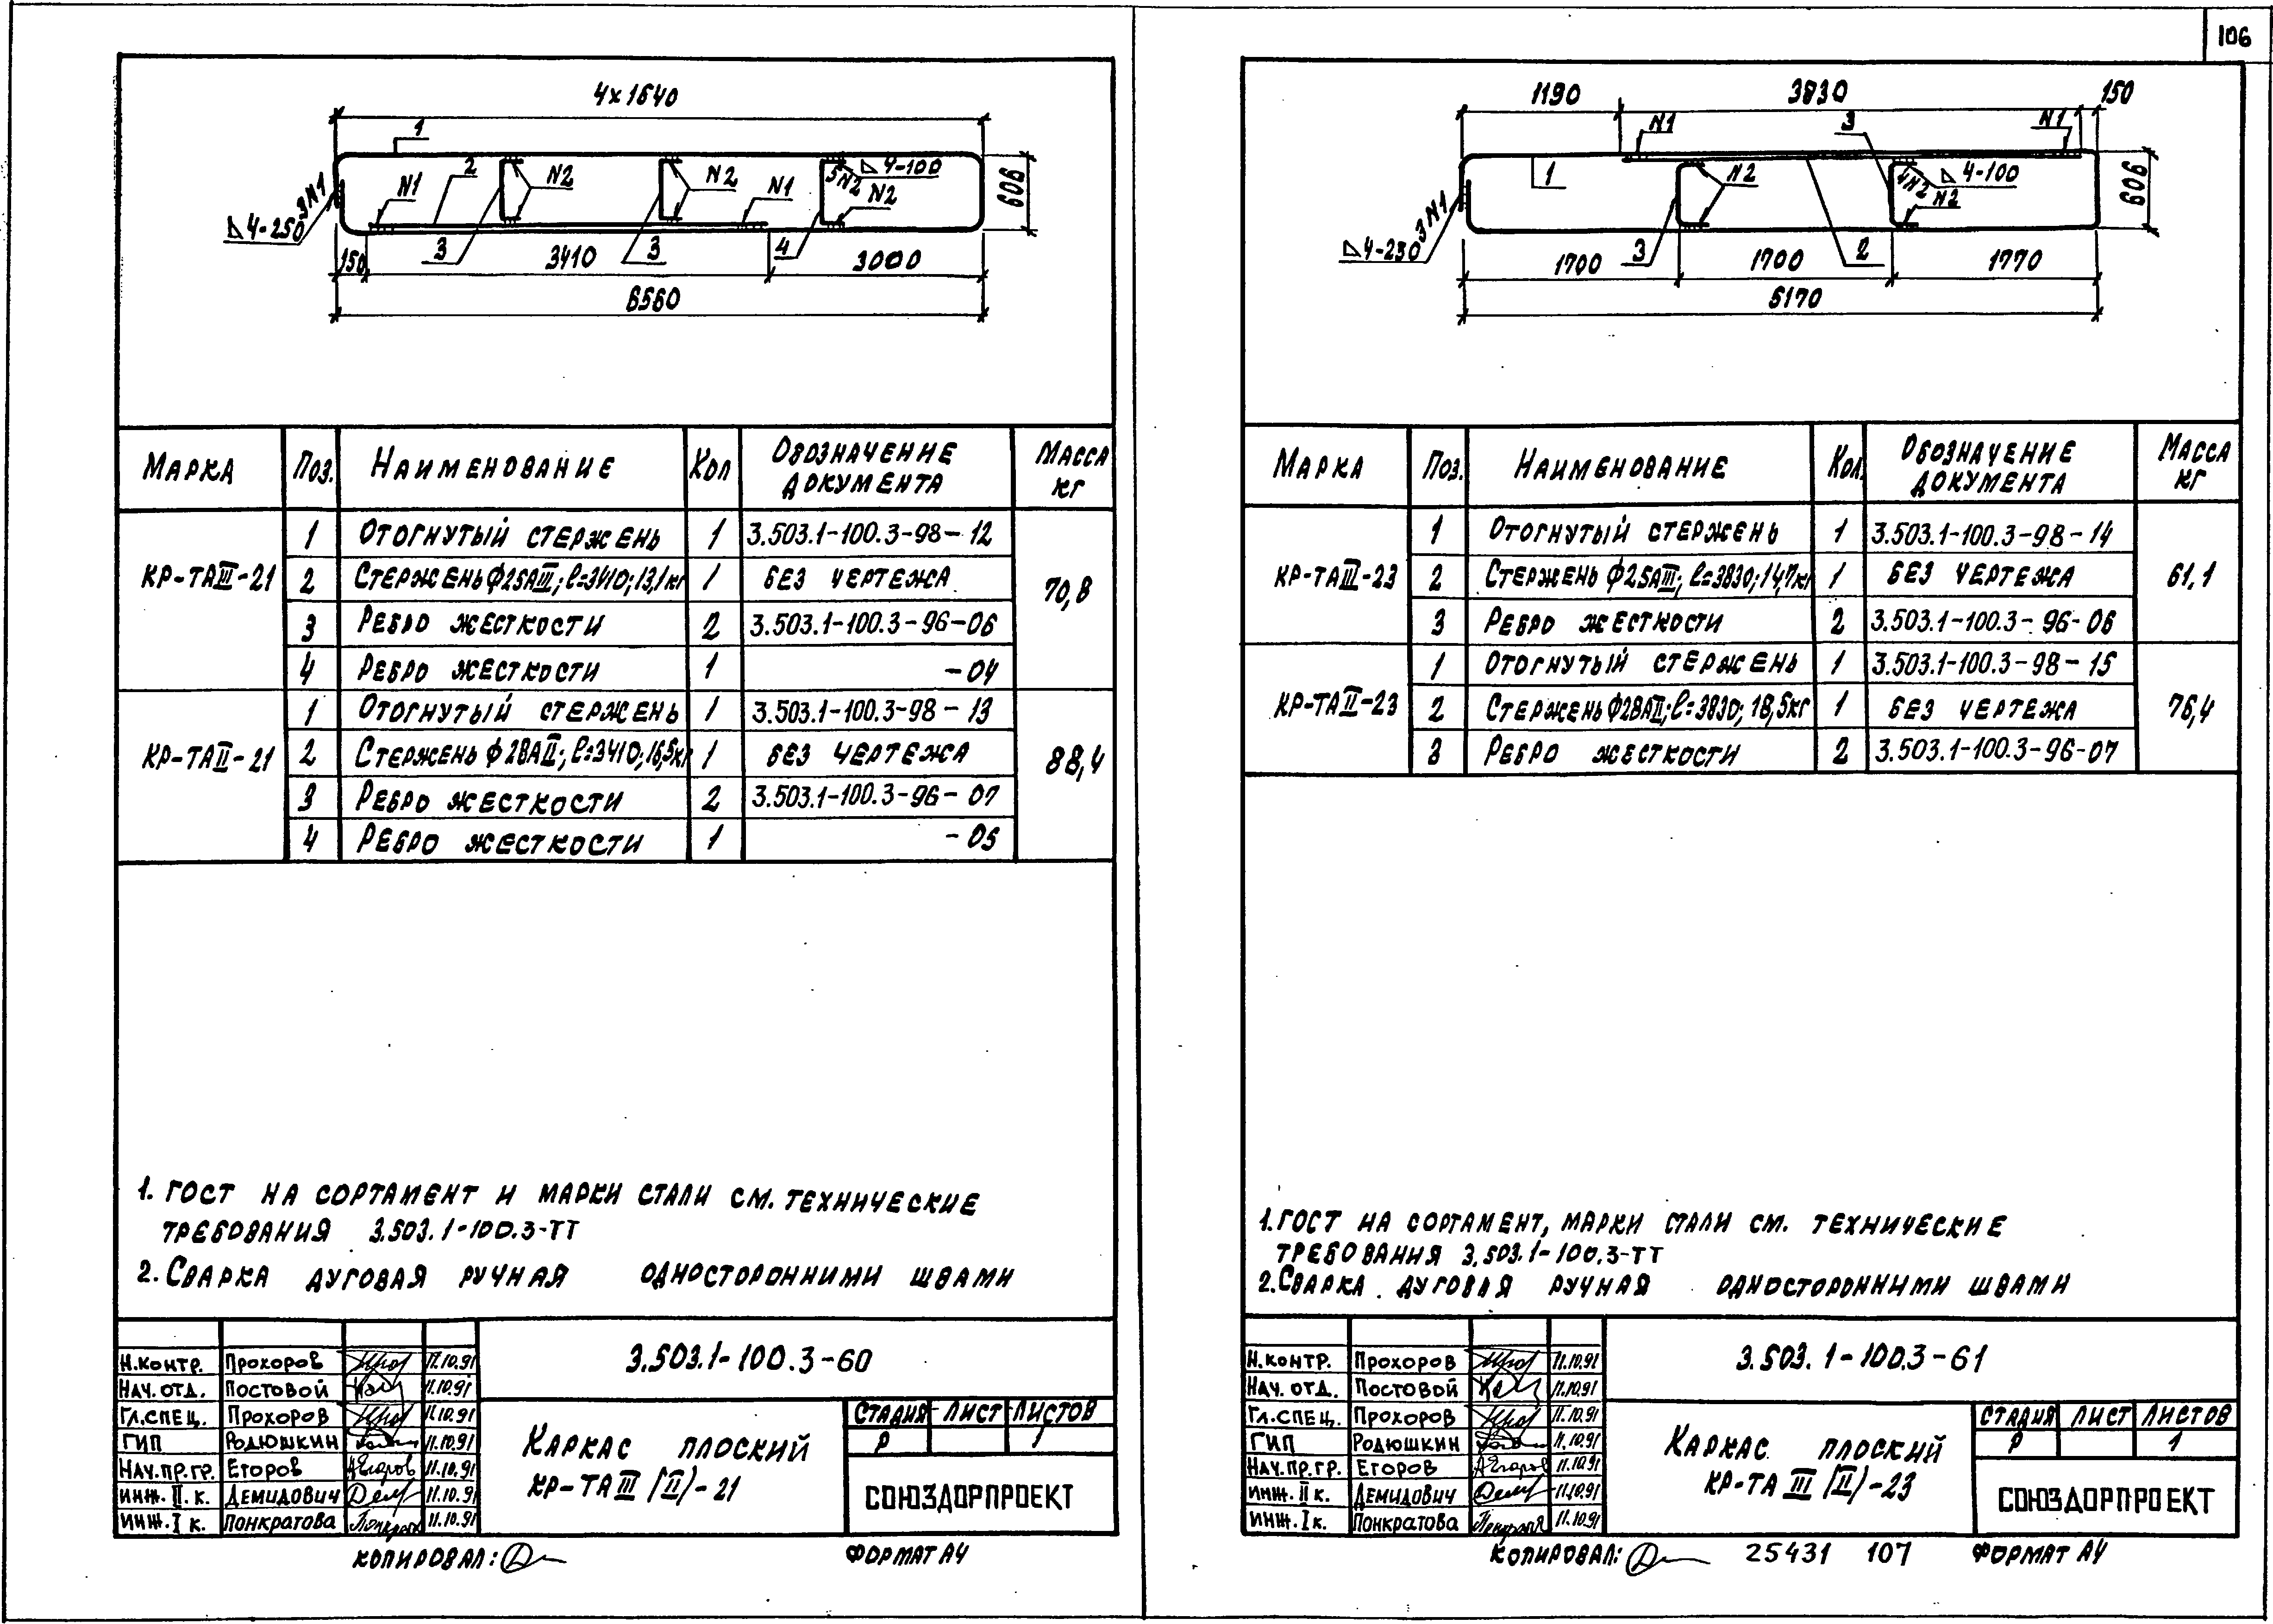 106
4×1640
1
2
N1
N2
N2
N1
5N2
⊿4-100
N2
606
3N1
⊿4-250
3
3
4
150
3410
3000
6560
Марка Поз. Наименование Кол Обозначение документа Масса кг
КР-ТАIII-21
1 Отогнутый стержень 1 3.503.1-100.3-98-12
2 Стержень ф25АIII; ℓ=3410; 13,1кг 1 без чертежа
3 Ребро жесткости 2 3.503.1-100.3-96-06
4 Ребро жесткости 1 -04
70,8
КР-ТАII-21
1 Отогнутый стержень 1 3.503.1-100.3-98-13
2 Стержень ф28АII; ℓ=3410; 16,5кг 1 без чертежа
3 Ребро жесткости 2 3.503.1-100.3-96-07
4 Ребро жесткости 1 -05
88,4
1. ГОСТ на сортамент и марки стали см. технические
требования 3.503.1-100.3-ТТ
2. Сварка дуговая ручная односторонними швами
Н.контр. Прохоров 11.10.91
Нач. отд. Постовой 11.10.91
Гл.спец. Прохоров 11.10.91
ГИП Родюшкин 11.10.91
Нач.пр.гр. Егоров 11.10.91
Инж. II к. Демидович 11.10.91
Инж. I к. Понкратова 11.10.91
3.503.1-100.3-60
Каркас плоский
КР-ТАIII(II)-21
Стадия Лист Листов
Р 1
СОЮЗДОРПРОЕКТ
Копировал:
Формат А4
1190
3830
150
N1
3
N1
1
N2
4N2
⊿4-100
N2
606
3N1
⊿4-230
3
2
1700
1700
1770
5170
Марка Поз. Наименование Кол. Обозначение документа Масса кг
КР-ТАIII-23
1 Отогнутый стержень 1 3.503.1-100.3-98-14
2 Стержень ф25АIII; ℓ=3830; 14,7кг 1 без чертежа
3 Ребро жесткости 2 3.503.1-100.3-96-06
61,1
КР-ТАII-23
1 Отогнутый стержень 1 3.503.1-100.3-98-15
2 Стержень ф28АII; ℓ=3830; 18,5кг 1 без чертежа
3 Ребро жесткости 2 3.503.1-100.3-96-07
76,4
1. ГОСТ на сортамент, марки стали см. технические
требования 3.503.1-100.3-ТТ
2. Сварка дуговая ручная односторонними швами
Н.контр. Прохоров 11.10.91
Нач. отд. Постовой 11.10.91
Гл.спец. Прохоров 11.10.91
ГИП Родюшкин 11.10.91
Нач.пр.гр. Егоров 11.10.91
Инж. II к. Демидович 11.10.91
Инж. I к. Понкратова 11.10.91
3.503.1-100.3-61
Каркас плоский
КР-ТА III (II)-23
Стадия Лист Листов
Р 1
СОЮЗДОРПРОЕКТ
Копировал: 25431 107 Формат А4